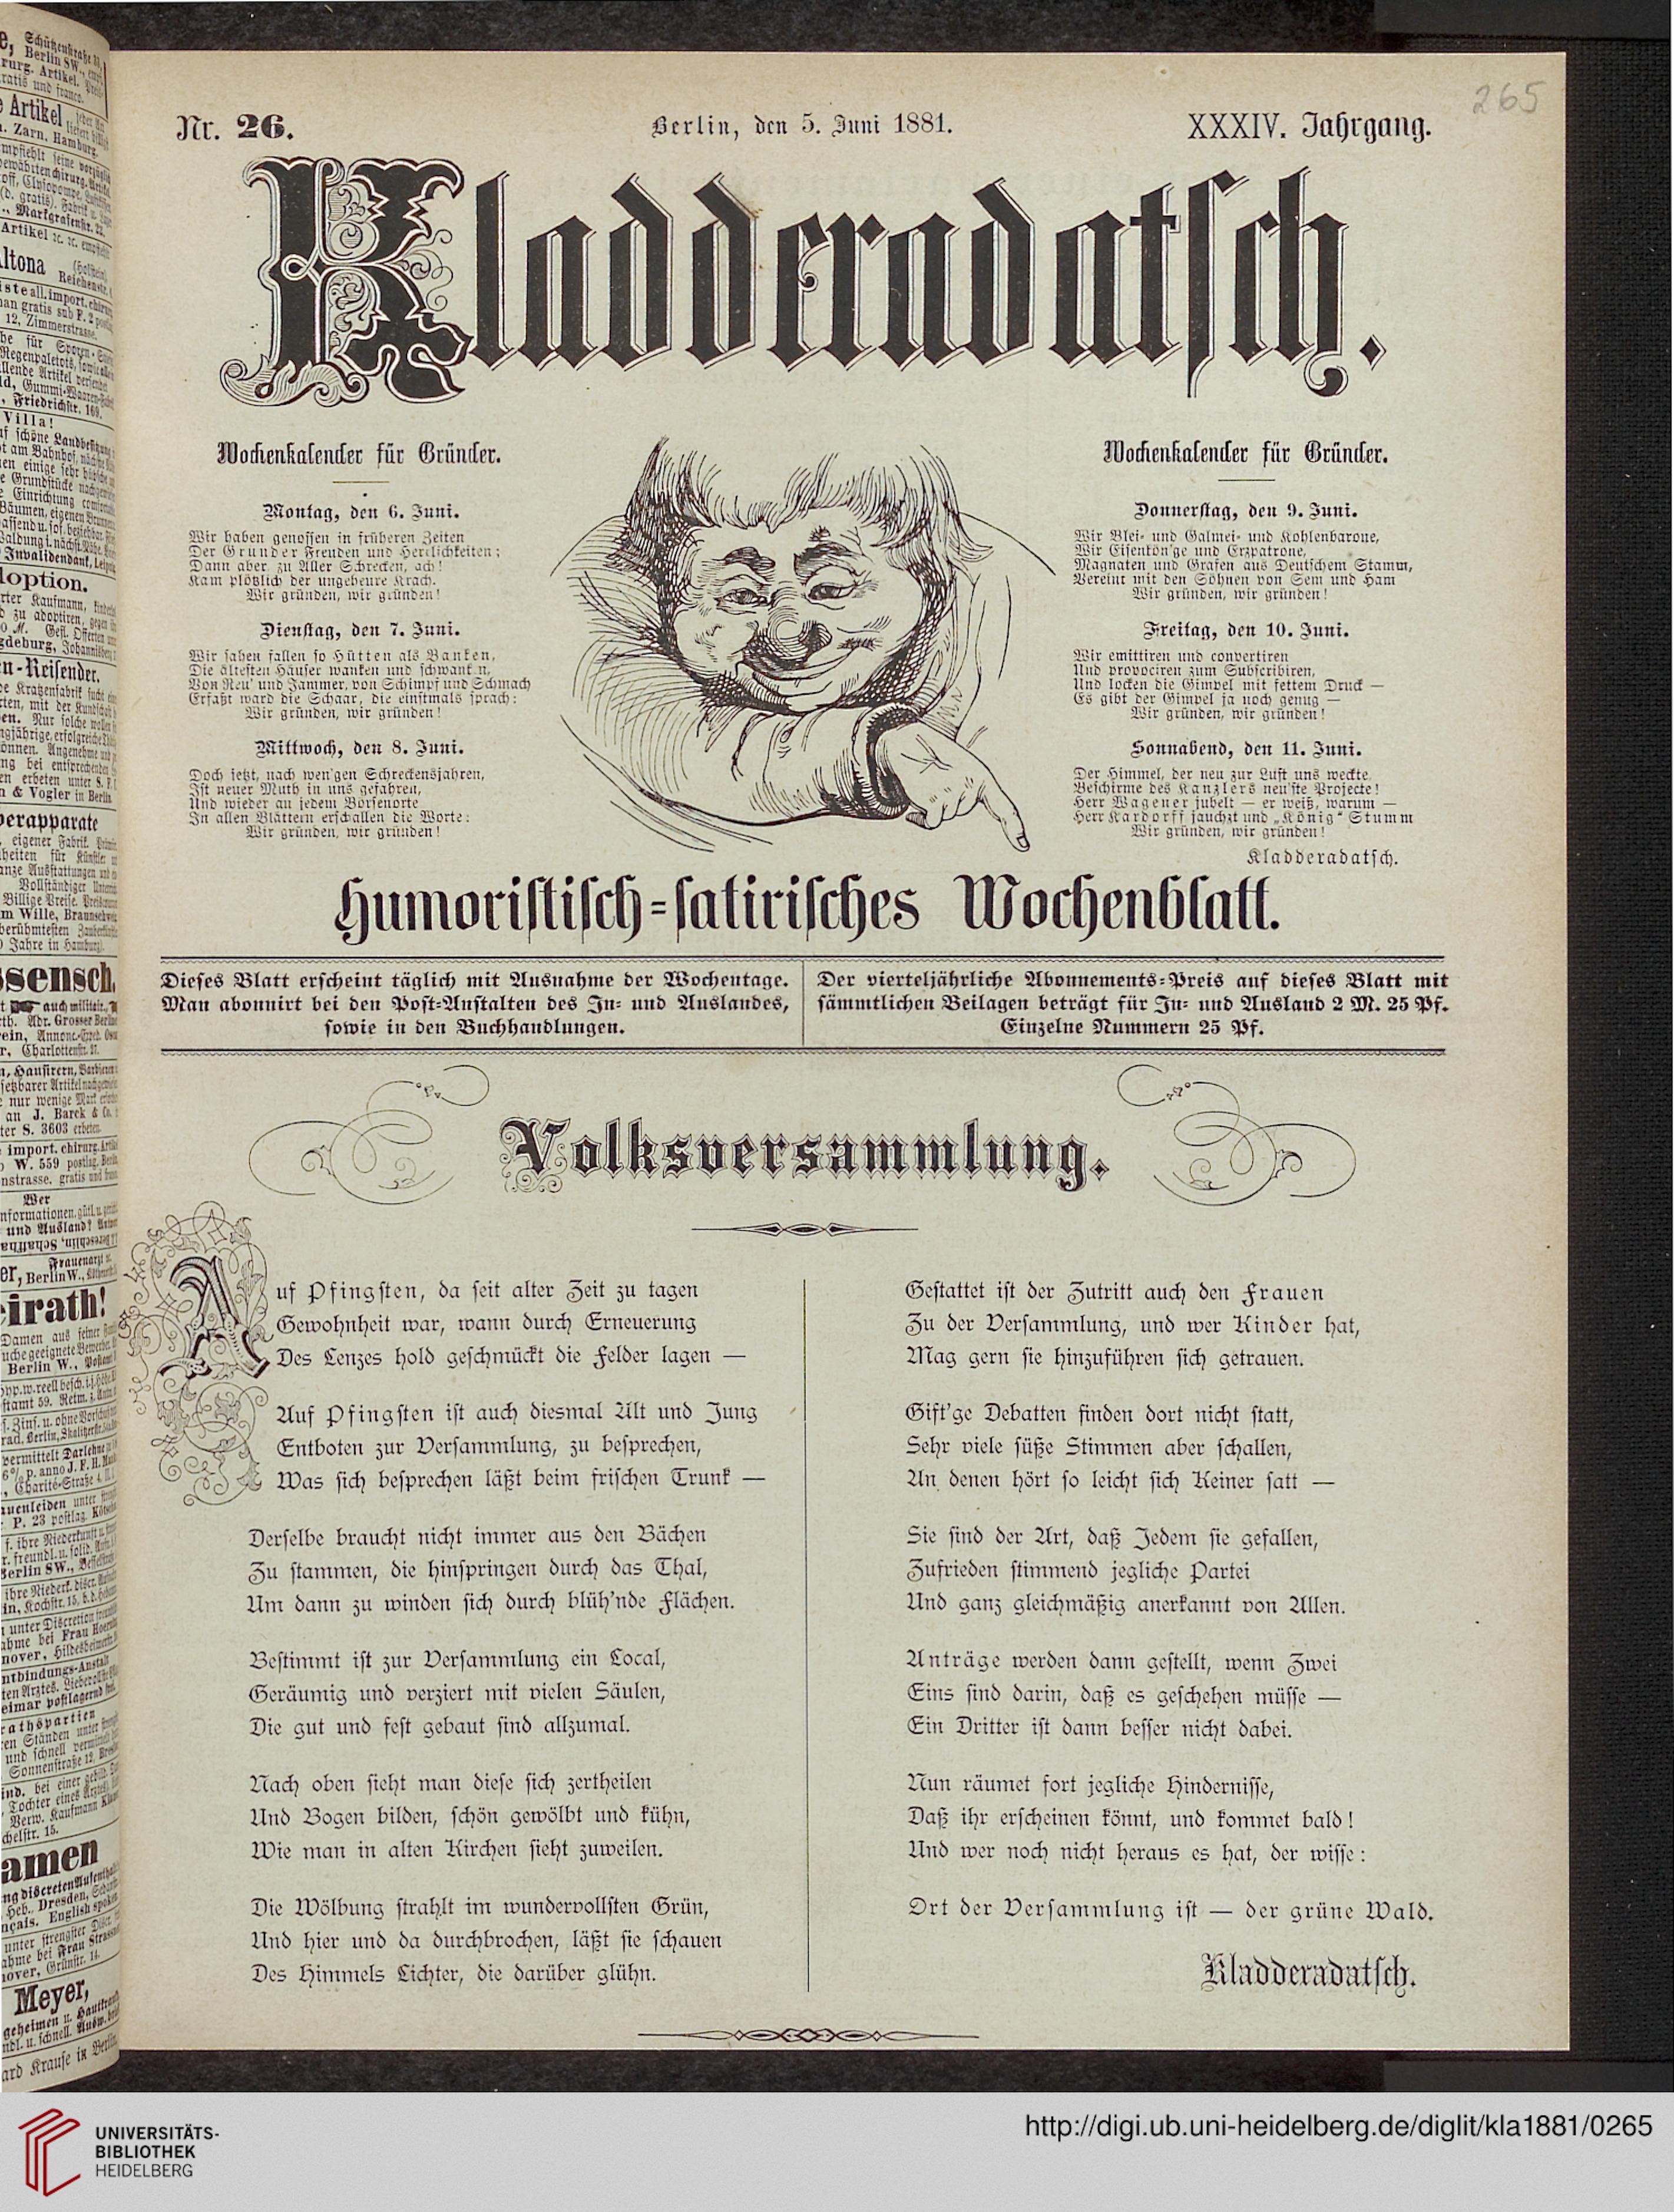 265
Nr. 26.
Berlin, den 5. Juni 1881.
XXXIV. Jahrgang.
Kladderadatsch.
Wochenkalender für Gründer.
Montag, den 6. Juni.
Wir haben genossen in früheren Zeiten
Der Gründer Freuden und Herrlichkeiten;
Dann aber, zu Aller Schrecken, ach!
Kam plötzlich der ungeheure Krach.
Wir gründen, wir gründen!
Dienstag, den 7. Juni.
Wir sahen fallen so Hütten als Banken,
Die ältesten Häuser wanken und schwanken,
Von Reu' und Jammer, von Schimpf und Schmach
Erfaßt ward die Schaar, die einstmals sprach:
Wir gründen, wir gründen!
Mittwoch, den 8. Juni.
Doch jetzt, nach wen'gen Schreckensjahren,
Ist neuer Muth in uns gefahren,
Und wieder an jedem Börsenorte
In allen Blättern erschallen die Worte:
Wir gründen, wir gründen!
Wochenkalender für Gründer.
Donnerstag, den 9. Juni.
Wir Blei- und Galmei- und Kohlenbarone,
Wir Eisenkön'ge und Erzpatrone,
Magnaten und Grafen aus Deutschem Stamm,
Vereint mit den Söhnen von Sem und Ham
Wir gründen, wir gründen!
Freitag, den 10. Juni.
Wir emittiren und convertiren
Und provociren zum Subscribiren,
Und locken die Gimpel mit fettem Druck —
Es gibt der Gimpel ja noch genug —
Wir gründen, wir gründen!
Sonnabend, den 11. Juni.
Der Himmel, der neu zur Lust uns weckte,
Beschirme des Kanzlers neu'ste Projecte!
Herr Wagener jubelt — er weiß, warum —
Herr Kardorff jauchzt und „König“ Stumm
Wir gründen, wir gründen!
Kladderadatsch.
Humoristisch-satirisches Wochenblatt.
Dieses Blatt erscheint täglich mit Ausnahme der Wochentage.
Man abonnirt bei den Post-Anstalten des In- und Auslandes,
sowie in den Buchhandlungen.
Der vierteljährliche Abonnements-Preis auf dieses Blatt mit
sämmtlichen Beilagen beträgt für In- und Ausland 2 M. 25 Pf.
Einzelne Nummern 25 Pf.
Volksversammlung.
Auf Pfingsten, da seit alter Zeit zu tagen
Gewohnheit war, wann durch Erneuerung
Des Lenzes hold geschmückt die Felder lagen —
Auf Pfingsten ist auch diesmal Alt und Jung
Entboten zur Versammlung, zu besprechen,
Was sich besprechen läßt beim frischen Trunk —
Derselbe braucht nicht immer aus den Bächen
Zu stammen, die hinspringen durch das Thal,
Um dann zu winden sich durch blüh'nde Flächen.
Bestimmt ist zur Versammlung ein Local,
Geräumig und verziert mit vielen Säulen,
Die gut und fest gebaut sind allzumal.
Nach oben sieht man diese sich zertheilen
Und Bogen bilden, schön gewölbt und kühn,
Wie man in alten Kirchen sieht zuweilen.
Die Wölbung strahlt im wundervollsten Grün,
Und hier und da durchbrochen, läßt sie schauen
Des Himmels Lichter, die darüber glühn.
Gestattet ist der Zutritt auch den Frauen
Zu der Versammlung, und wer Kinder hat,
Mag gern sie hinzuführen sich getrauen.
Gift'ge Debatten finden dort nicht statt,
Sehr viele süße Stimmen aber schallen,
An denen hört so leicht sich Keiner satt —
Sie sind der Art, daß Jedem sie gefallen,
Zufrieden stimmend jegliche Partei
Und ganz gleichmäßig anerkannt von Allen.
Anträge werden dann gestellt, wenn Zwei
Eins sind darin, daß es geschehen müsse —
Ein Dritter ist dann besser nicht dabei.
Nun räumet fort jegliche Hindernisse,
Daß ihr erscheinen könnt, und kommet bald!
Und wer noch nicht heraus es hat, der wisse:
Ort der Versammlung ist — der grüne Wald.
Kladderadatsch.
UNIVERSITÄTS-
BIBLIOTHEK
HEIDELBERG
http://digi.ub.uni-heidelberg.de/diglit/kla1881/0265